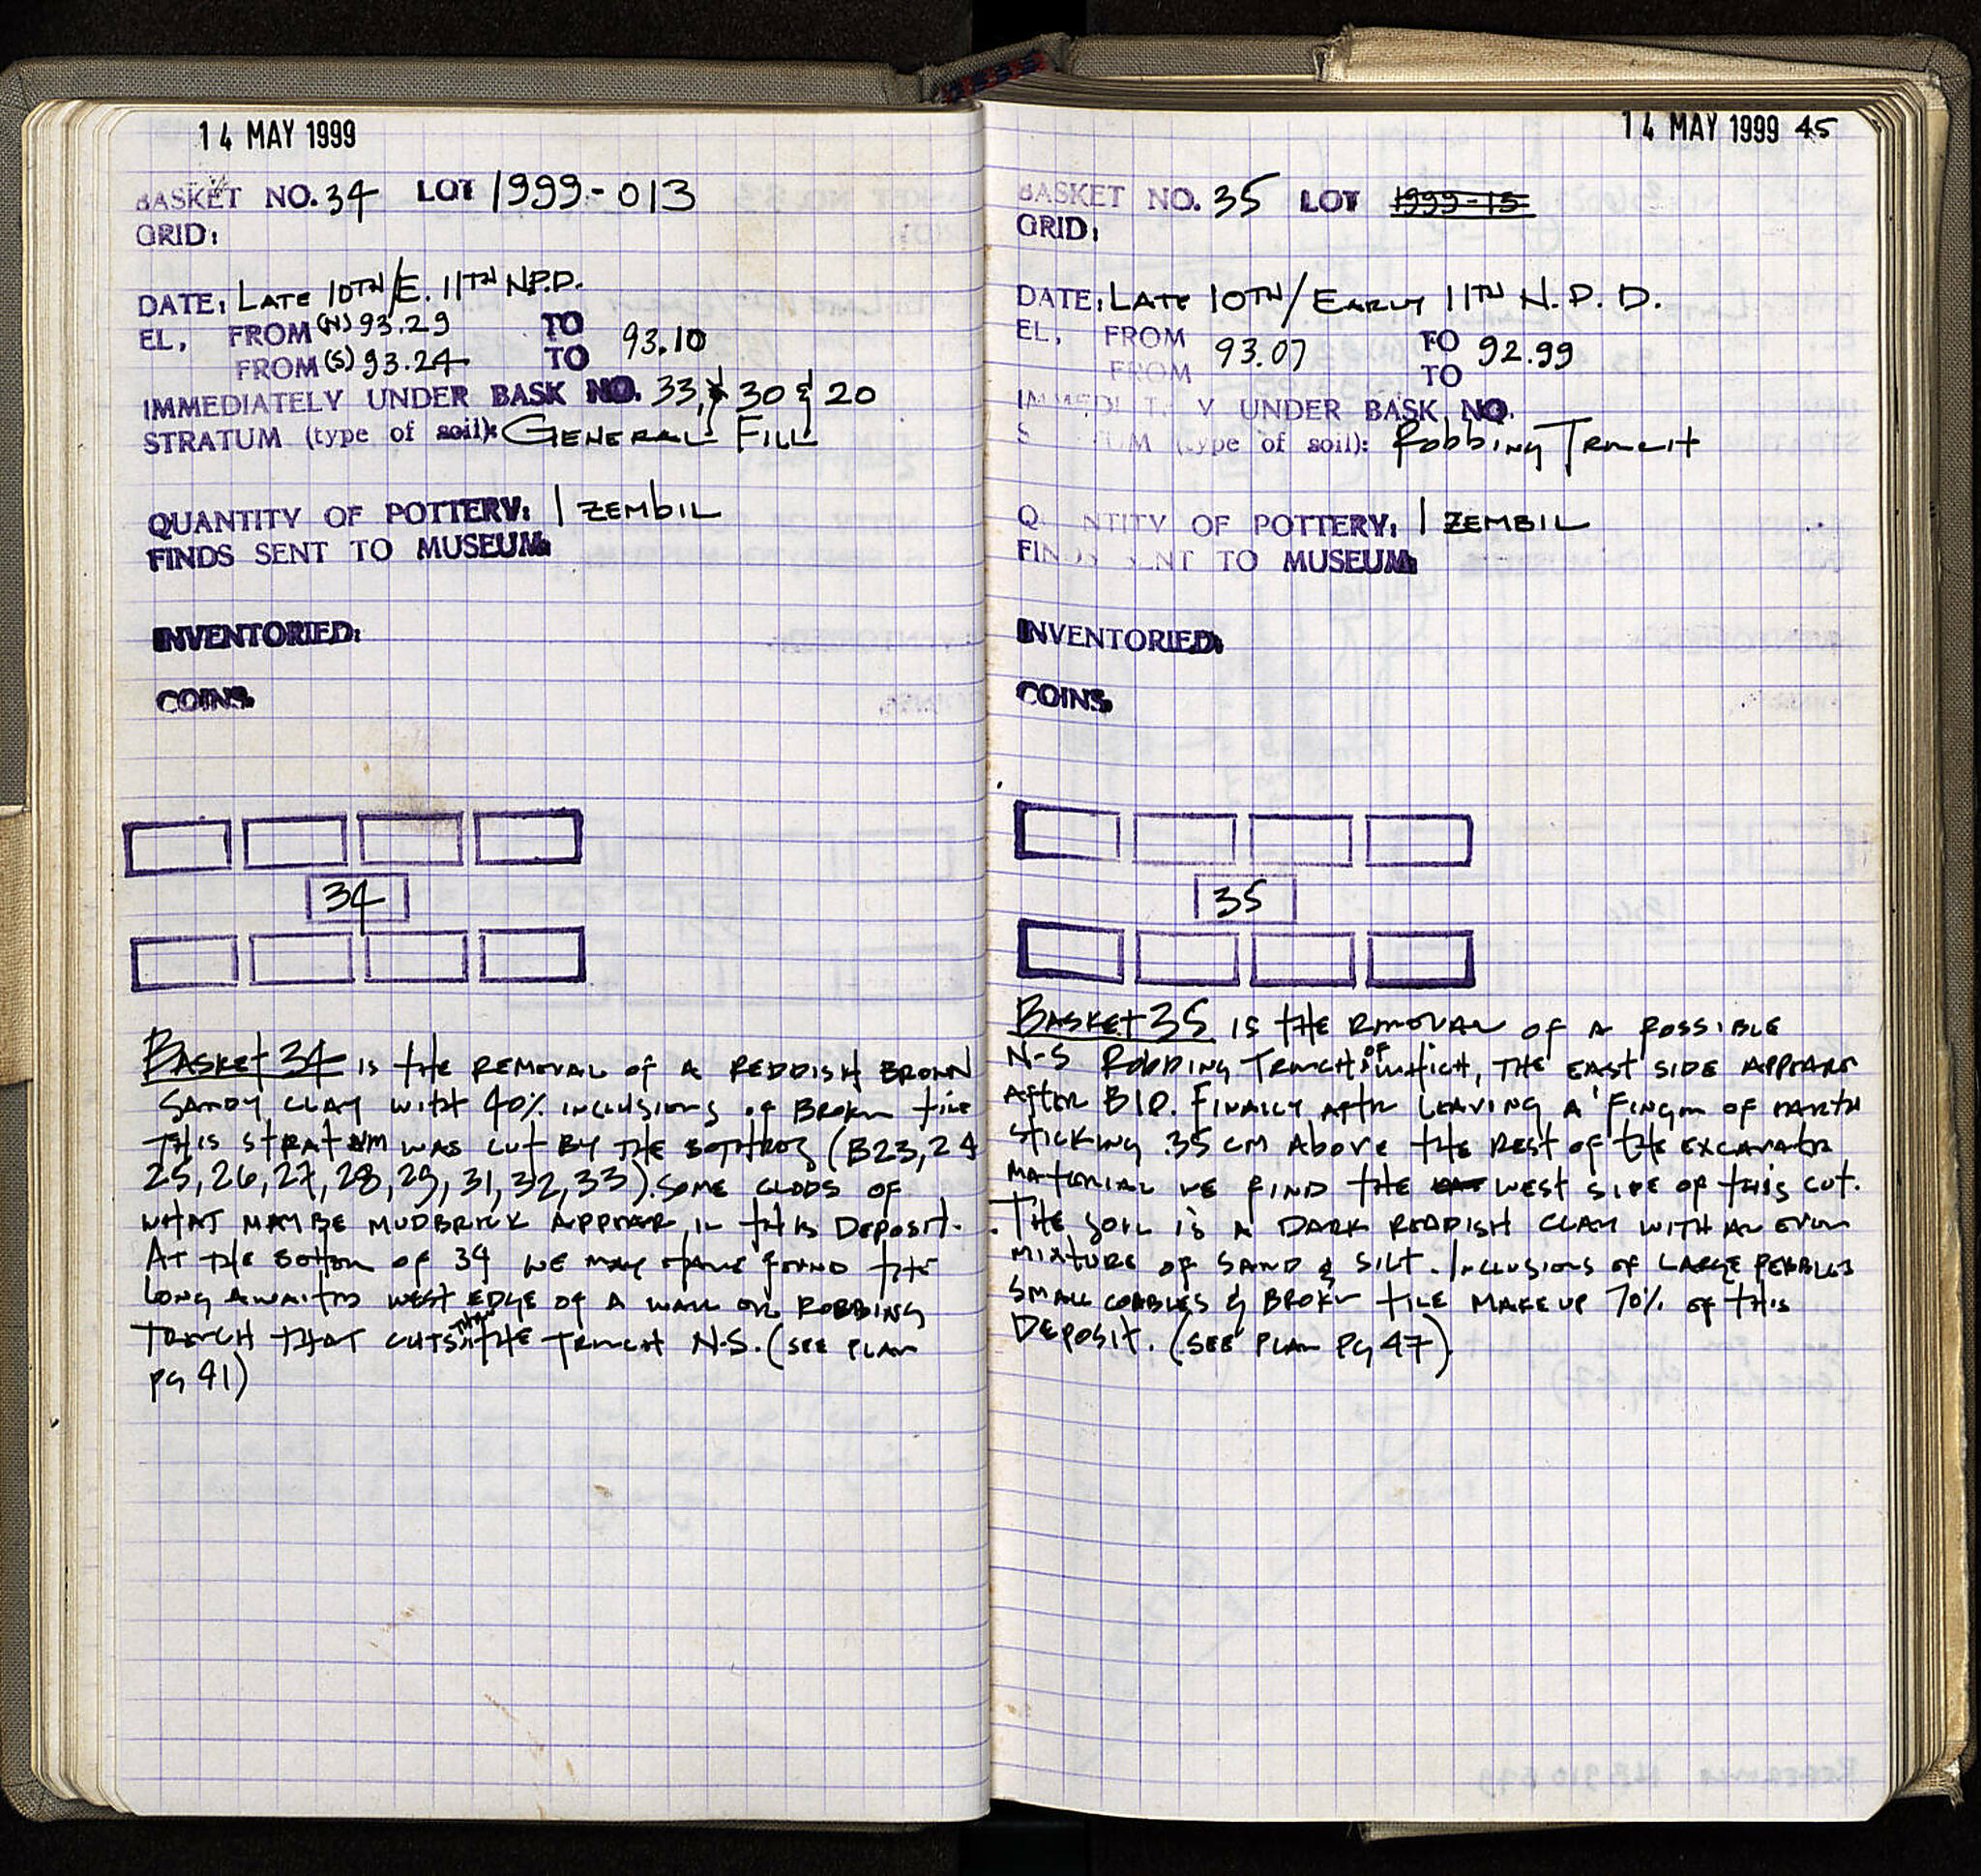 14 MAY 1999
BASKET NO. 34 LOT 1999-013
GRID:
DATE: LATE 10TH/E. 11TH N.P.D.
EL, FROM (N) 93.29 TO
FROM (S) 93.24 TO 93.10
IMMEDIATELY UNDER BASK NO. 33, & 30 & 20
STRATUM (type of soil): GENERAL FILL
QUANTITY OF POTTERY: 1 ZEMBIL
FINDS SENT TO MUSEUM:
INVENTORIED:
COINS.
34
BASKET 34 IS THE REMOVAL OF A REDDISH BROWN
SANDY CLAY WITH 40% INCLUSIONS OF BROKEN TILE
THIS STRATUM WAS CUT BY THE BOTHROS (B23, 24
25, 26, 27, 28, 29, 31, 32, 33). SOME CLODS OF
WHAT MAY BE MUDBRICK APPEAR IN THIS DEPOSIT.
AT THE BOTTOM OF 34 WE MAY HAVE FOUND THE
LONG AWAITED WEST EDGE OF A WALL OR ROBBING
TRENCH THAT CUTS THE TRENCH N-S. (SEE PLAN
PG 41)
14 MAY 1999 45
BASKET NO. 35 LOT 1999-15
GRID:
DATE: LATE 10TH/EARLY 11TH N.P.D.
EL, FROM 93.07 TO 92.99
FROM TO
UNDER BASK NO.
(type of soil): Robbing Trench
QUANTITY OF POTTERY: 1 ZEMBIL
FINDS SENT TO MUSEUM:
INVENTORIED:
COINS.
35
BASKET 35 IS THE REMOVAL OF A POSSIBLE
N-S ROBBING TRENCH OF WHICH, THE EAST SIDE APPEARS
AFTER B10. FINALLY AFTER LEAVING A FINGER OF EARTH
STICKING .35 CM ABOVE THE REST OF THE EXCAVATED
MATERIAL WE FIND THE EAST WEST SIDE OF THIS CUT.
THE SOIL IS A DARK REDDISH CLAY WITH AN EVEN
MIXTURE OF SAND & SILT. INCLUSIONS OF LARGE PEBBLES
SMALL COBBLES & BROKEN TILE MAKE UP 70% OF THIS
DEPOSIT. (SEE PLAN PG 47)